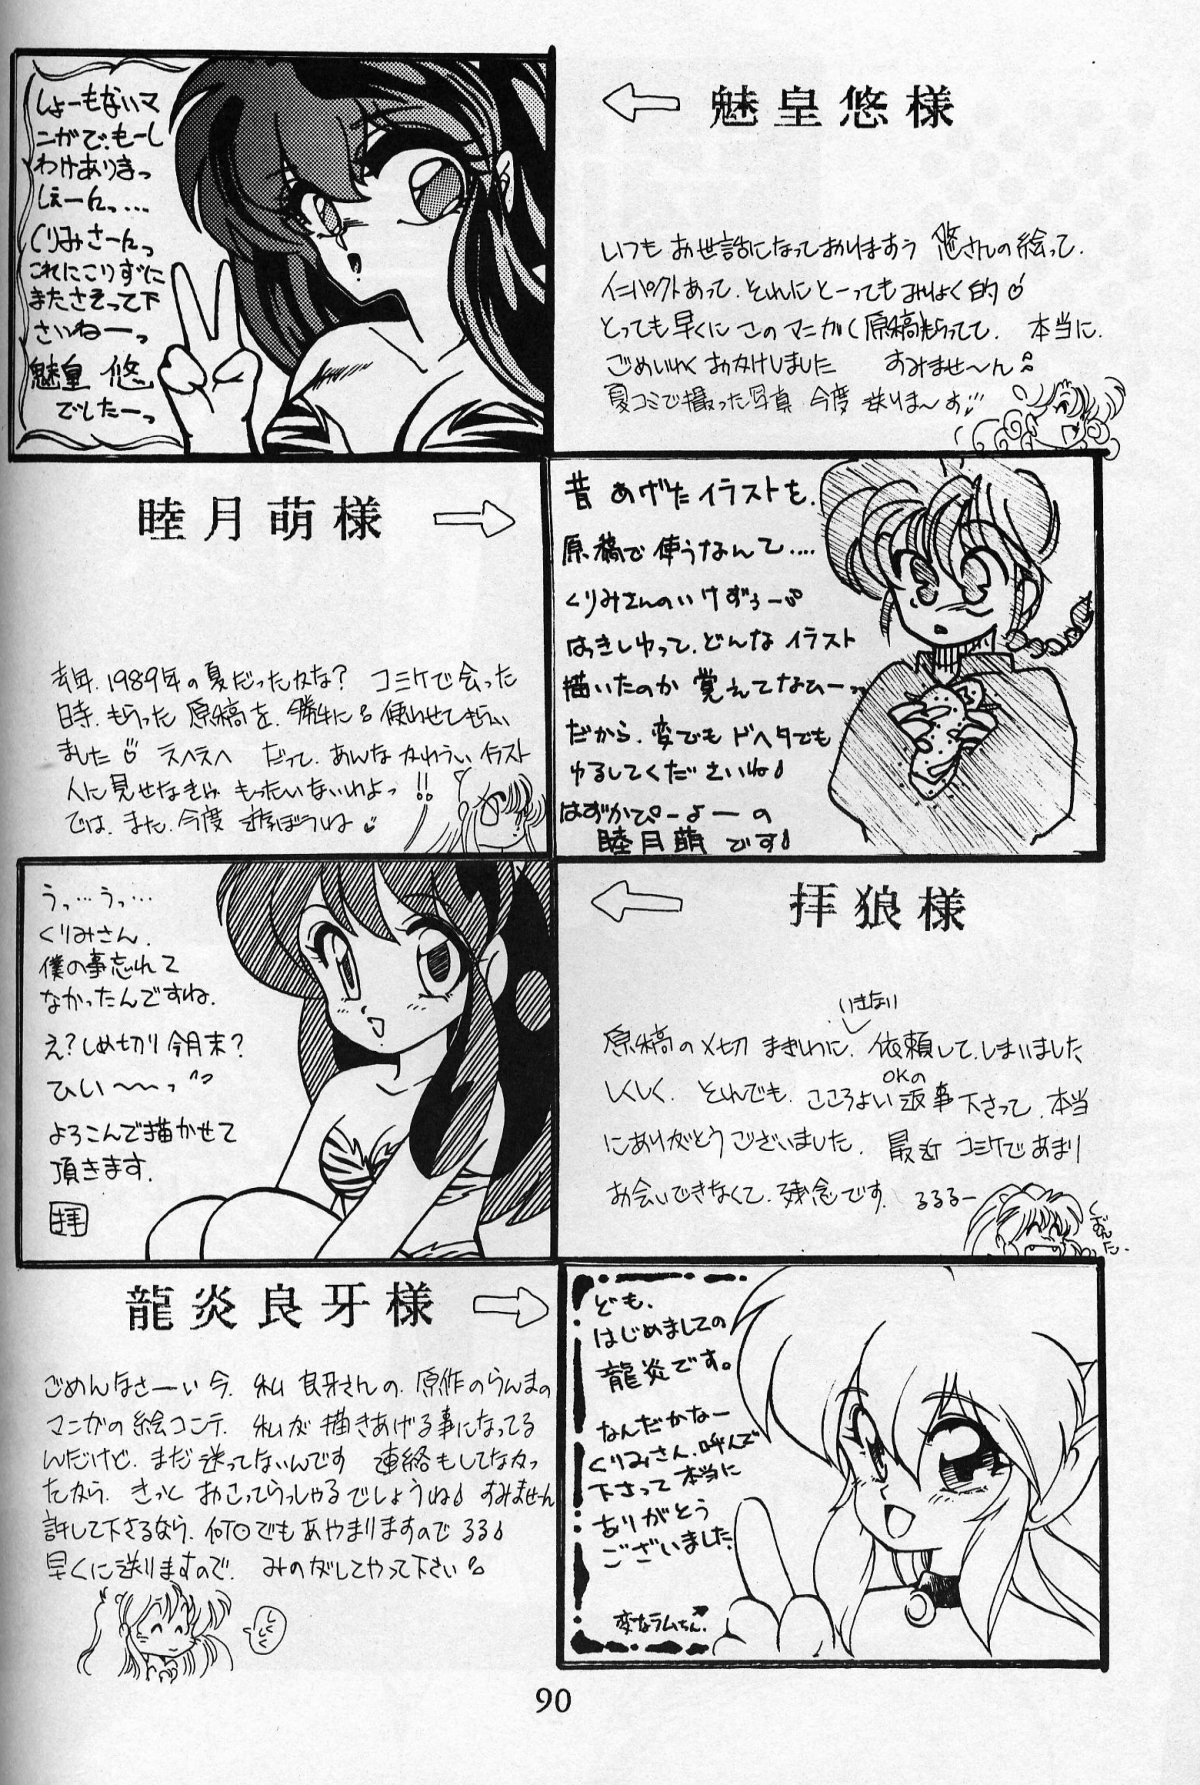 しょーもないマ
ニがで、もーし
わけありまっ
しぇーんっ…
くりみさーんっ
これにこりずに
またさそって下
さいねーっ
魅皇 悠
でしたーっ
魅皇悠様
いつも お世話になっておりますう 悠さんの絵って、
インパクトあって、それにとーってもみりょく的
とっても早くに このマニがく原稿もらってて、 本当に
ごめいわく おかけしました すみませ〜ん
夏コミで撮った写真 今度 送りま〜す
睦月萌様
去年、1989年の夏だったかな? コミケで会った
日時、もらった 原稿を、勝手に 使わせてもらい
ました エヘエヘ だって、あんな かわうい イラスト
人に見せなきゃ もったいないわよっ !!
では、また、今度 遊ぼうね
昔 あげた イラストを、
原稿で 使うなんて....
くりみさんのいけずぅー
はっきしゆって、どんな イラスト
描いたのか 覚えてなひーっ
だから、変でも ドヘタでも
ゆるしてくださいね♪
はずかぴーよーの
睦月萌 です♪
うっ…うっ…
くりみさん、
僕の事忘れて
なかったんですね、
え?しめ切り 今月末?
ひい〜〜っ
よろこんで描かせて
頂きます.
拝
拝狼様
いきなり
原稿の〆切 まぎわに、依頼して、しまいました
OKの
しくしく、 それでも、こころよい返事下さって、本当
にありがとうございました、 最近 コミケであまり
お会いできなくて、残念です、 るるるー
龍炎良牙様
ごめんなさーい 今、私 良牙さんの、原作のらんまの
マニガの 絵コンテ、私が 描きあげる事になってる
んだけど、まだ 送ってないんです 連絡もしてなかっ
たから、きっと おこってらっしゃるでしょうね♪ すみません
許して下さるなら、何でもあやまりますので るる♪
早くに送りますので、 みのがしてやって下さい
しくしく
ども、
はじめましての
龍炎です。
なんだかなー
くりみさん、呼んで
下さって本当に
ありがとう
ございました
変なラムちゃん
90